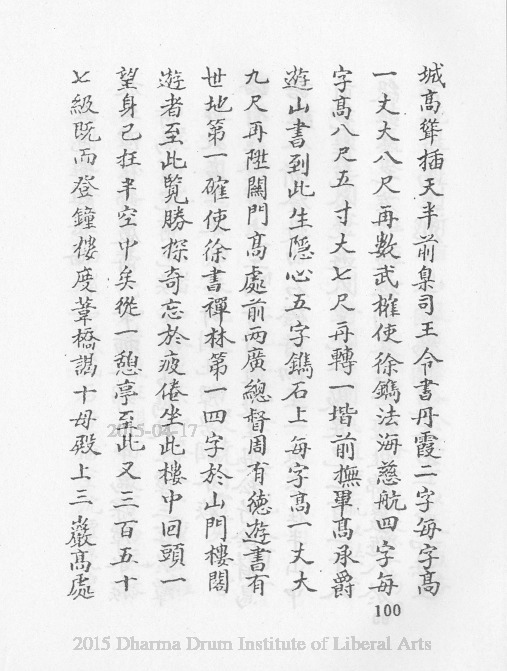 城高聳插天半前臬司王令書丹霞二字每字高
一丈大八尺再數武榷使徐鐫法海慈航四字每
字高八尺五寸大七尺再轉一堦前撫軍高承爵
遊山書到此生隱心五字鐫石上每字高一丈大
九尺再陞關門高處前兩廣總督周有德遊書有
世地第一確使徐書禪林第一四字於山門樓閣
遊者至此覧勝探奇忘於疲倦坐此樓中回頭一
望身已在半空中矣從一憩亭至此又三百五十
七級既而登鐘樓度葦橋謁十母殿上三巖高處
100
2015-04-17
2015 Dharma Drum Institute of Liberal Arts